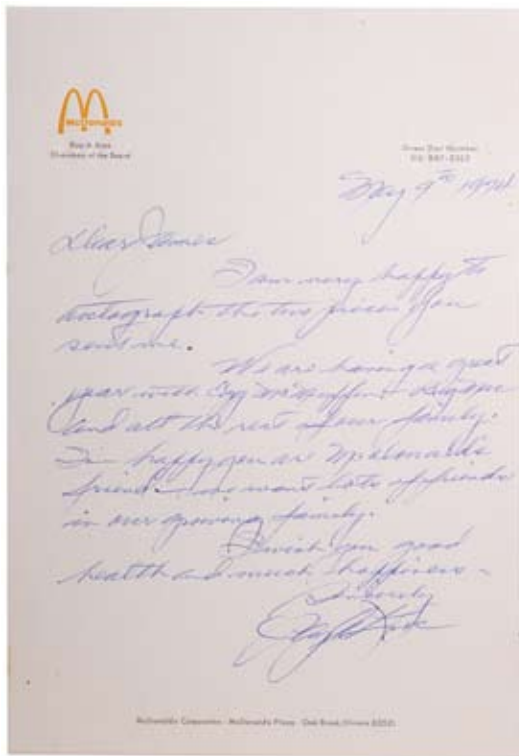 McDonald's
Ray A. Kroc
Chairman of the Board
Direct Dial Number
May 9th 1974
Dear James
I am very happy to
autograph the two you
sent me.
We are having a great
year with Egg McMuffin
and all the rest of our family.
I'm happy you are McDonald's
friend we want lots of friends
in our growing family.
I wish you good
health and much happiness -
Sincerely
Ray A Kroc
McDonald's Corporation · McDonald's Plaza · Oak Brook, Illinois 60521